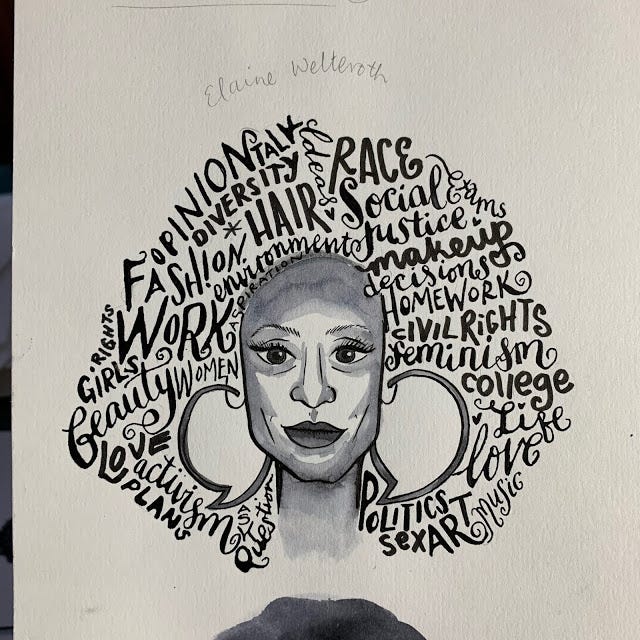 Elaine Welteroth
OPINION
TALK
Ideas
RACE
DIVERSITY
*HAIR
Social
Justice
Exams
FASHION
environment
ASPIRATION
makeup
decisions
HOMEWORK
WORK
CIVIL RIGHTS
feminism
GIRLS' RIGHTS
Beauty
WOMEN
college
Life
LOVE
love
activism
PLANS
ASK
Question
POLITICS
sex
ART
music